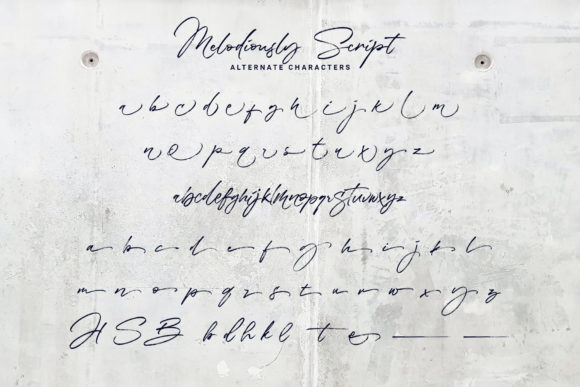 Melodiously Script
ALTERNATE CHARACTERS
a b c d e f g h i j k l m
n o p q r s t u x y z
abcdefghijklmnopqrstuvwxyz
a b c d e f g h i j k l
m n o p q r s t u v w x y z
H S B b d h k l t e